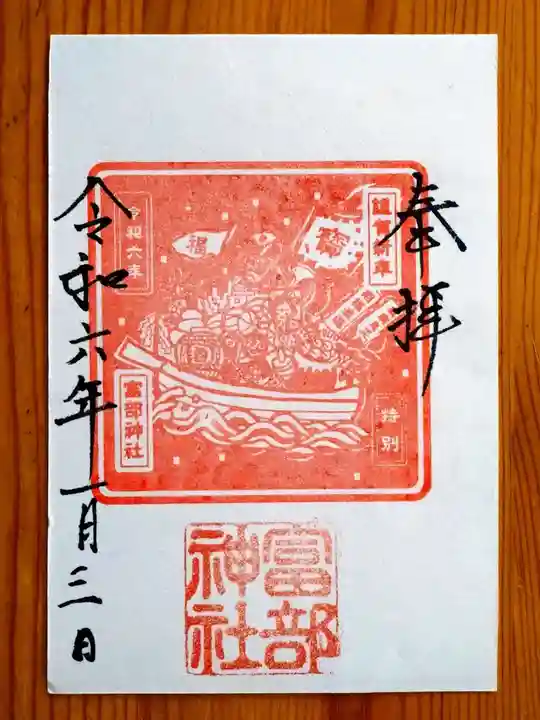 奉拝
謹賀新年
寳
福
令和六年
特別
富部神社
令和六年一月三日
富部
神社